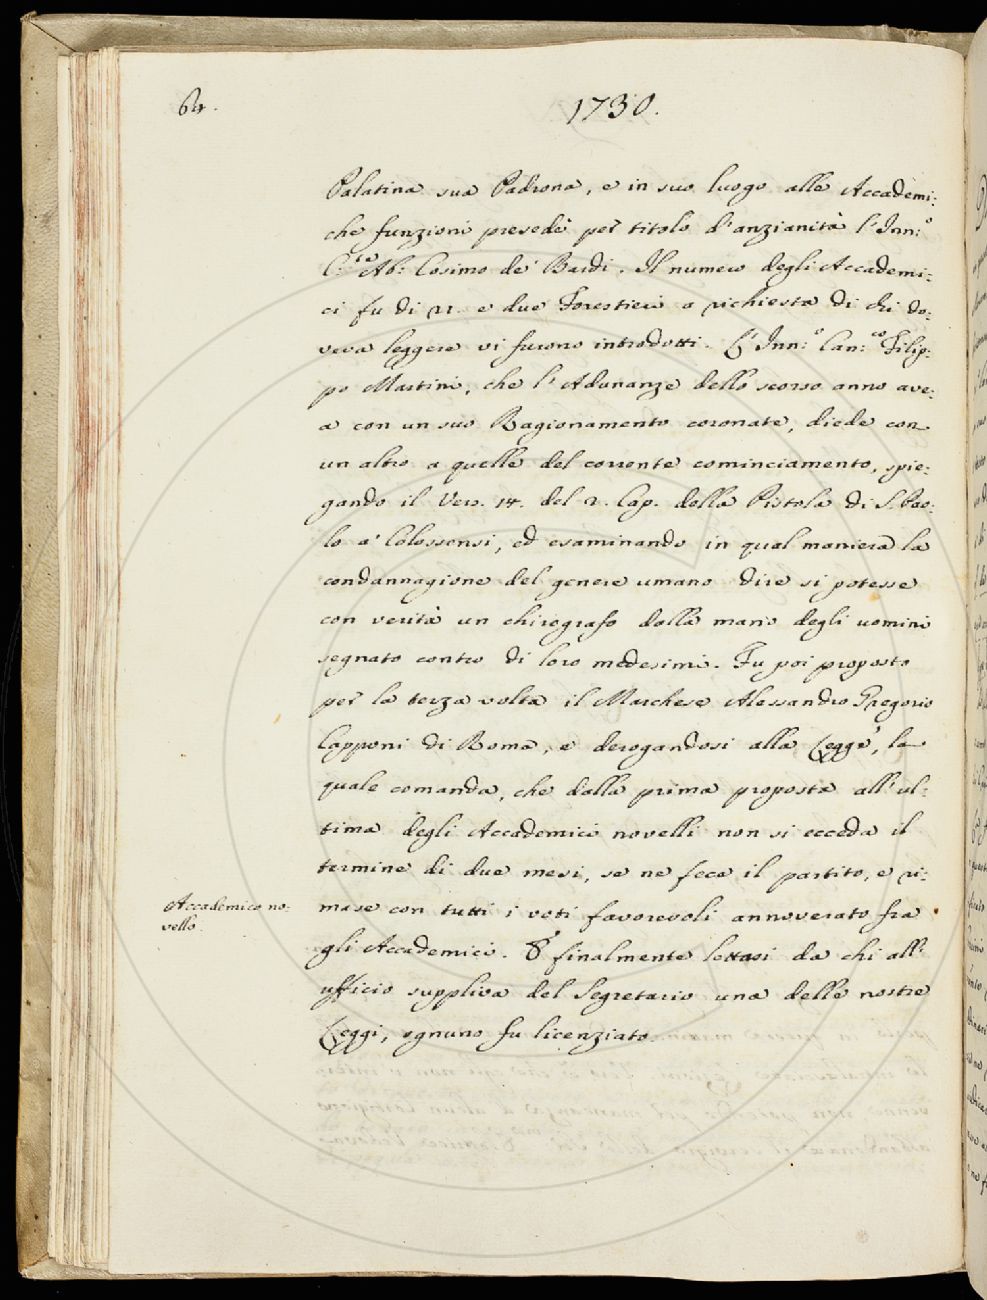 64.
1730.
Palatina sua Padrona, e in suo luogo alle Accademi:
che funzioni presedè per titolo d'anzianità l'Inn:o
C:te Ab: Cosimo de' Bardi. Il numero degli Accademi:
ci fu di 21. e due Forestieri a richiesta di chi do:
veva leggere vi furono introdotti. L'Inn:o Can:co Filip:
po Martini, che l'Adunanze dello scorso anno ave:
a con un suo Ragionamento coronate, diede con
un altro a quelle del corrente cominciamento, spie:
gando il Vers. 14. del 2. Cap. della Pistola di S. Pao:
lo a' Colossensi, ed esaminando in qual maniera la
condannagione del genere umano dire si potesse
con verità un chirografo dalla mano degli uomini
segnato contro di loro medesimi. Fu poi proposto
per la terza volta il Marchese Alessandro Gregorio
Capponi di Roma, e derogandosi alla Legge, la
quale comanda, che dalla prima proposta all'ul:
tima degli Accademici novelli non si ecceda il
termine di due mesi, se ne fece il partito, e ri:
Accademico no:
vello.
mase con tutti i voti favorevoli annoverato fra
gli Accademici. E finalmente lettasi da chi all'
ufficio suppliva del Segretario una delle nostre
Leggi, ognuno fu licenziato.